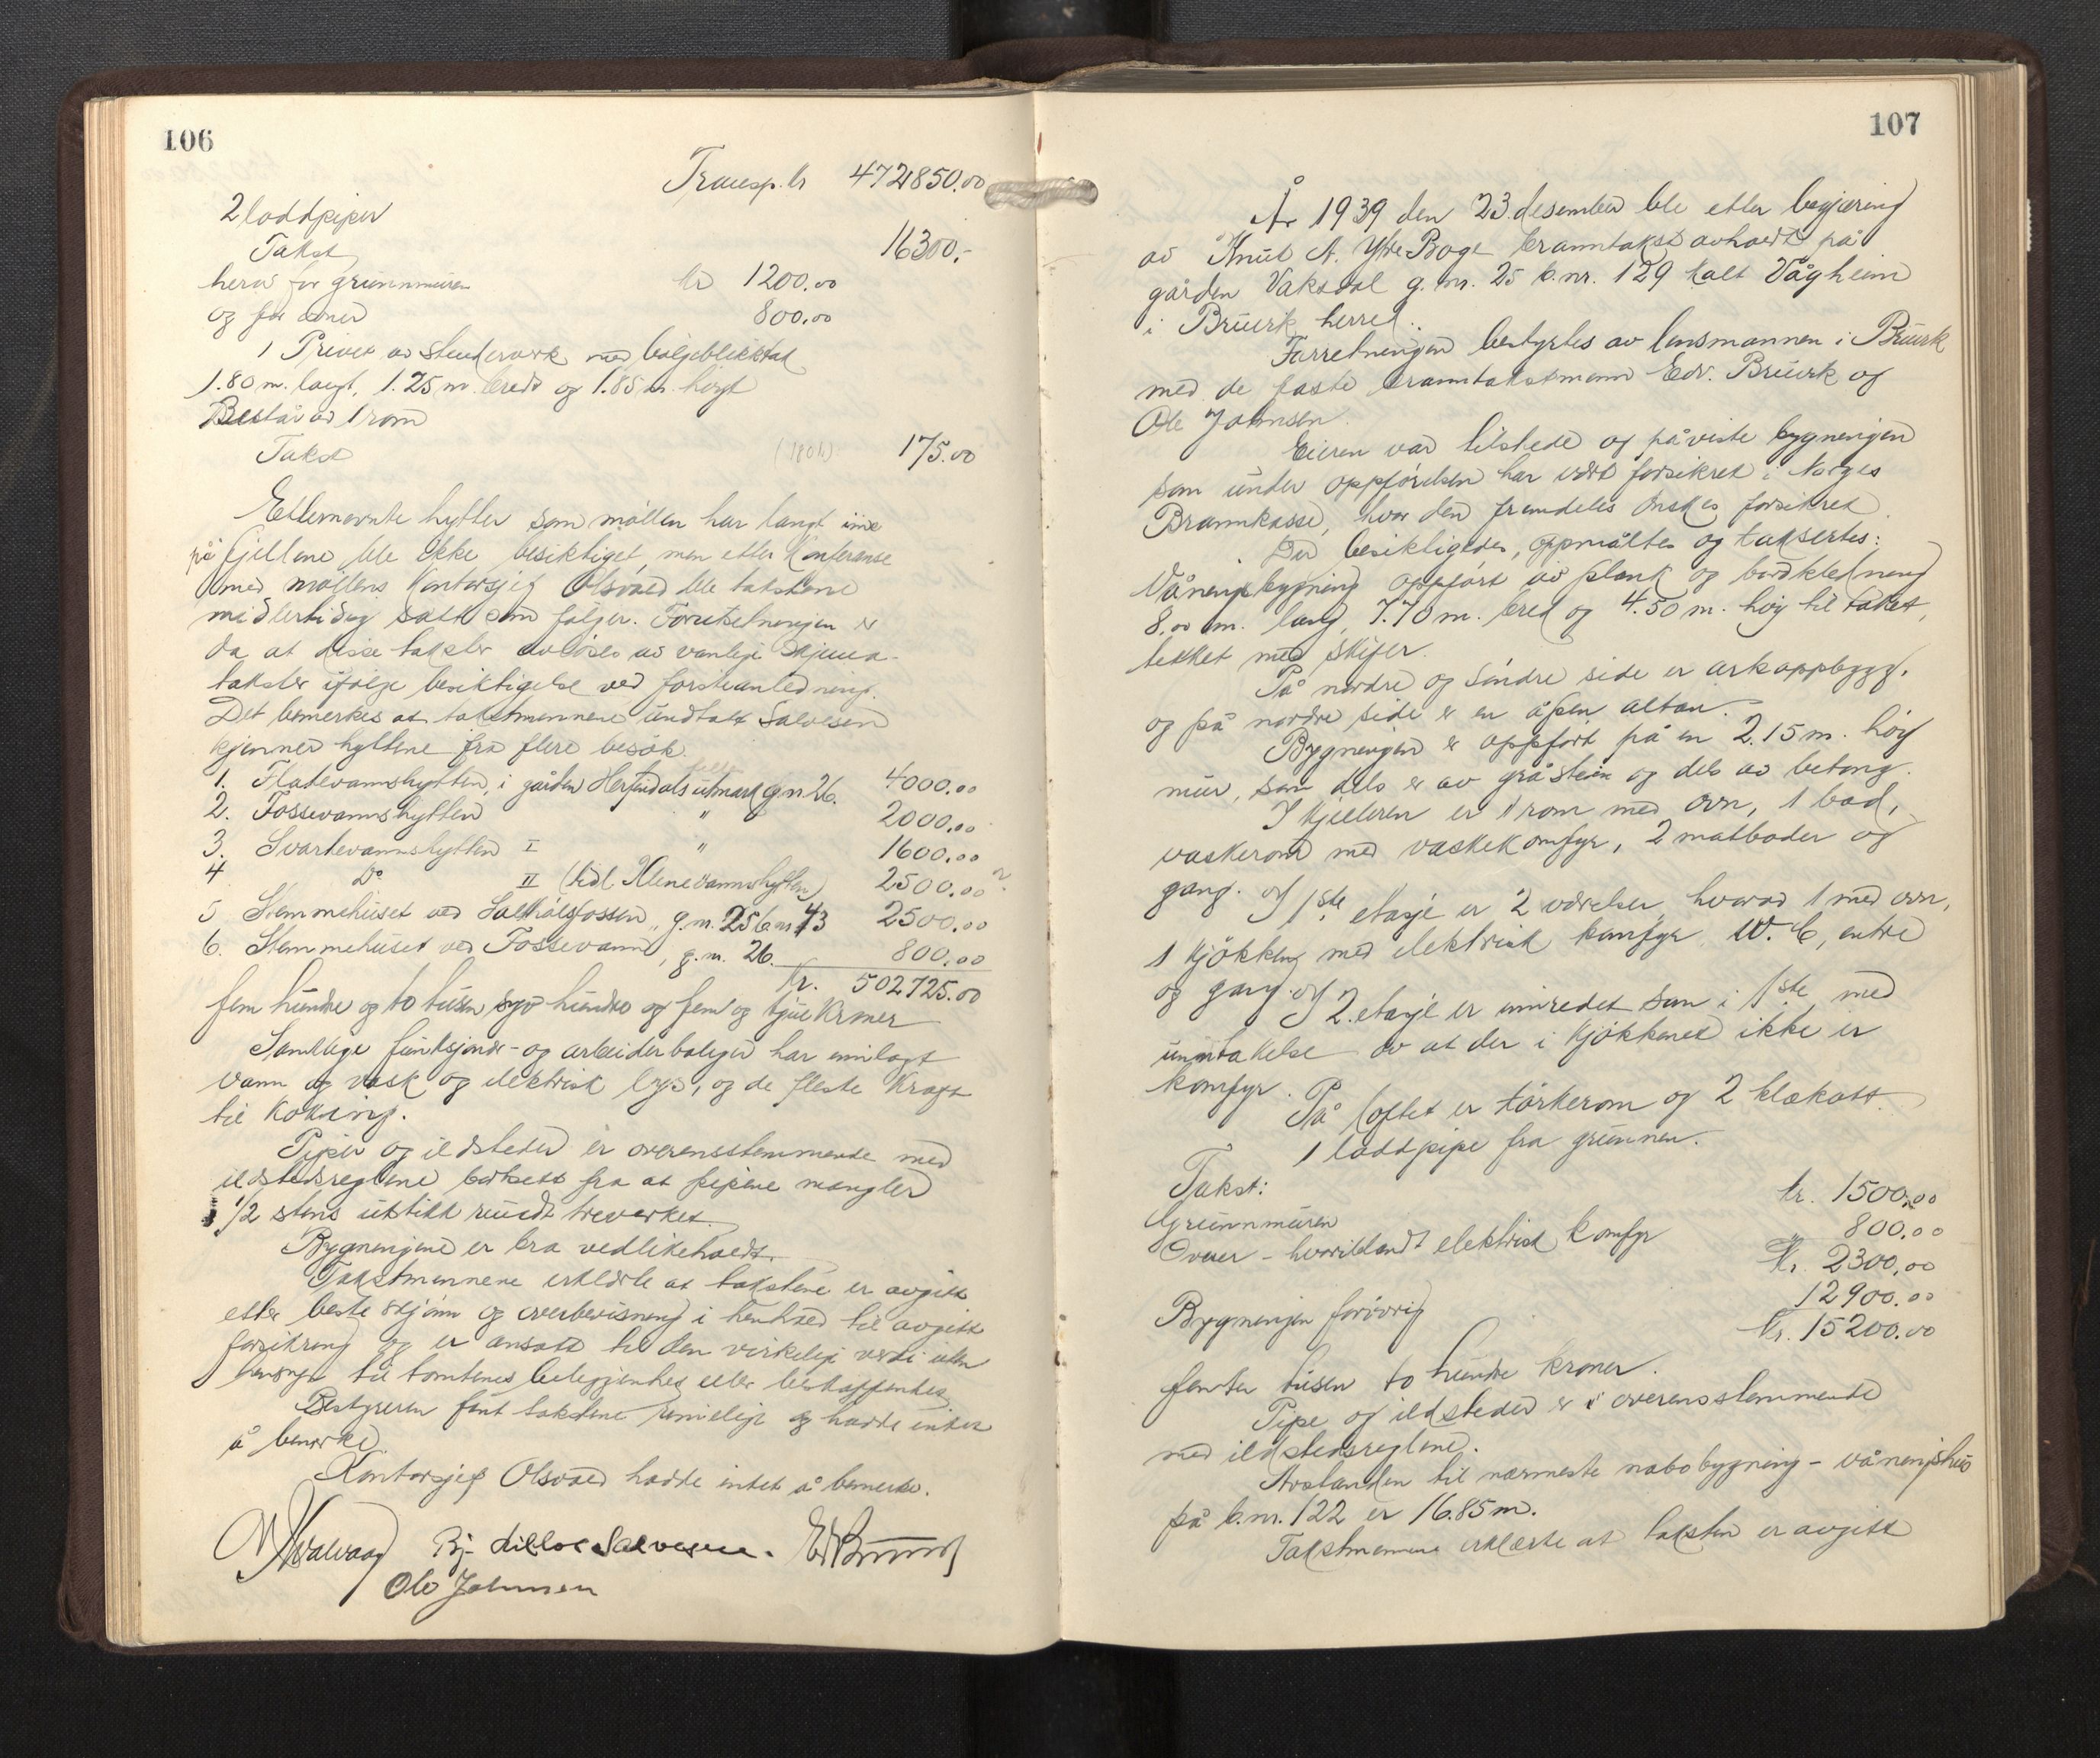 106
Transp. kr 472850.00
2 loddpiper
Takst 16300.-
herav for grunnmuren kr 1200.00
og for ovner 800.00
1 Privet av stenderverk med bølgeblikktak
1.80 m. langt, 1.25 m. bredt og 1.85 m. høgt
Består av 1 rom
Takst 175.00
Etternevnte hytter som møllen har langt inne
på fjellene ble ikke besiktiget, men etter konferanse
med møllens kontorsjef Olsvold ble takstene
midlertidig satt som følger. Forutsetningen er
da at disse takster avløses av vanlige skjema-
takster ifølge besiktigelse ved første anledning.
Det bemerkes at takstmennene undtatt Salvesen
kjenner hyttene fra flere besøk.
1. Fladevannshytten, i gården Herfindals utmark g.n 26. 4000.00
2. Fossevannshytten " 2000.00
3. Svartevannshytten I " 1600.00
4 Do II (tidl. Klenevannshytten) 2500.00
5 Stemmehuset ved Sælkålsfossen, g.nr. 25 b.nr 43 2500.00
6. Stemmehuset ved Fossevann, g.nr. 26. 800.00
Kr. 502725.00
fem hundre og to tusen syv hundre og fem og tjue kroner
Samtlige funksjonær- og arbeiderboliger har innlagt
vann og vask og elektrisk lys, og de fleste kraft
til koking.
Piper og ildsteder er overensstemmende med
ildstedsreglene bortsett fra at pipene mangler
1/2 stens utstikk rundt treverket.
Bygningene er bra vedlikeholdt.
Takstmennene erklærte at takstene er avgitt
etter beste skjønn og overbevisning i henhold til avgitt
forsikring og er ansatt til den virkelige verdi uten
hensyn til tomtenes beliggenhet eller beskaffenhet
Bestyreren fant takstene rimelige og hadde intet
å bemerke.
Kontorsjef Olsvold hadde intet å bemerke.
Bj. Lilloe Salvesen. Ed Bruvik
Ole Johnsen
107
År 1939 den 23. desember ble etter begjæring
av Knut A. Ytre Boge branntakst avholdt på
gården Vaksdal g.nr. 25 b.nr. 129 kalt Vågheim
i Bruvik herred.
Forretningen bestyrtes av lensmannen i Bruvik
med de faste branntakstmenn Edv. Bruvik og
Ole Johnsen.
Eieren var tilstede og påviste bygningen
som under oppførelsen har vært forsikret i Norges
Brannkasse, hvor den fremdeles ønskes forsikret.
Der besiktigedes, oppmåltes og taksertes:
Våningsbygning oppført av plank og bordkledning
8.00 m. lang, 7.70 m. bred og 4.50 m. høg til taket,
tekket med skifer.
På nordre og søndre side er arkoppbygg,
og på nordre side er en åpen altan.
Bygningen er oppført på en 2.15 m. høg
mur, som dels er av gråstein og dels av betong.
I kjelleren er 1 rom med ovn, 1 bad,
vaskerom med vaskekomfyr, 2 matboder og
gang. I 1ste etasje er 2 værelser, hvorav 1 med ovn,
1 kjøkken med elektrisk komfyr, W.C, entre
og gang. I 2. etasje er innredet som i 1ste med
unntakelse av at der i kjøkkenet ikke er
komfyr.
På loftet er tørkerom og 2 klækott.
1 loddpipe fra grunnen.
Takst:
Grunnmuren kr. 1500.00
Ovner - hvoriblandt elektrisk komfyr " 800.00
Kr. 2300.00
Bygningen forøvrig 12900.00
Kr. 15200.00
femten tusen to hundre kroner.
Pipe og ildsteder er overensstemmende
med ildstedsreglene.
Avstanden til nærmeste nabobygning - våningshus
på b.nr. 122 er 16.85 m.
Takstmennene erklærte at taksten er avgitt